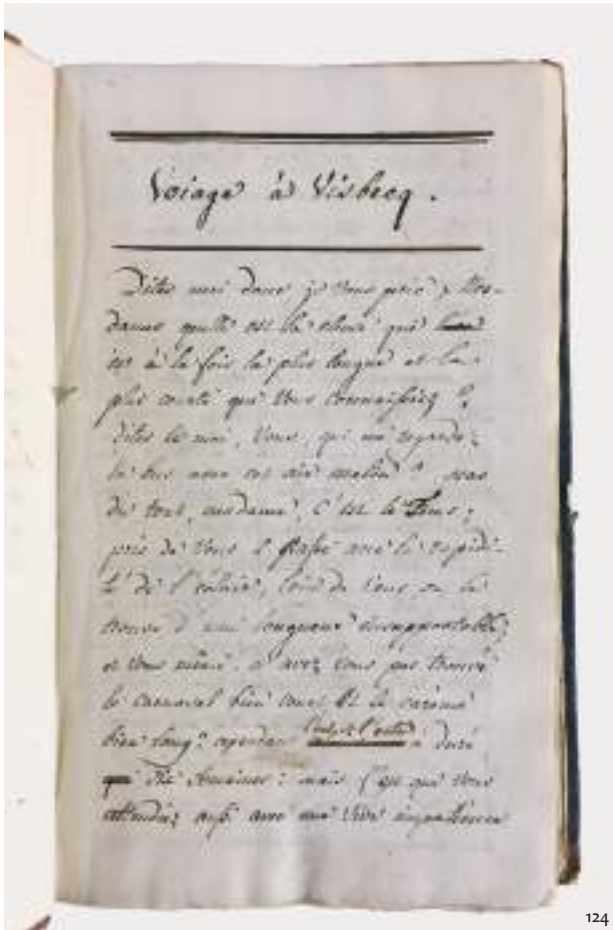 Voiage à Visbecq.
Dites moi donc, je vous prie, Mes-
dames quelle est la chose qui
est à la fois la plus longue et la
plus courte que vous connaissiez ?
dites le moi, vous, qui me regardez
la bas avec cet air malin ? pas
du tout, madame, C'est le Tems ;
près de vous il passe avec la rapidi-
té de l'éclair, loin de vous on le
trouve d'une longueur insupportable ;
et vous même, n'avez vous pas trouvé
le carnaval bien court et le carême
bien long ? cependant l'un et l'autre a duré
six semaines : mais c'est que vous
attendiez avec une vive impatience
124